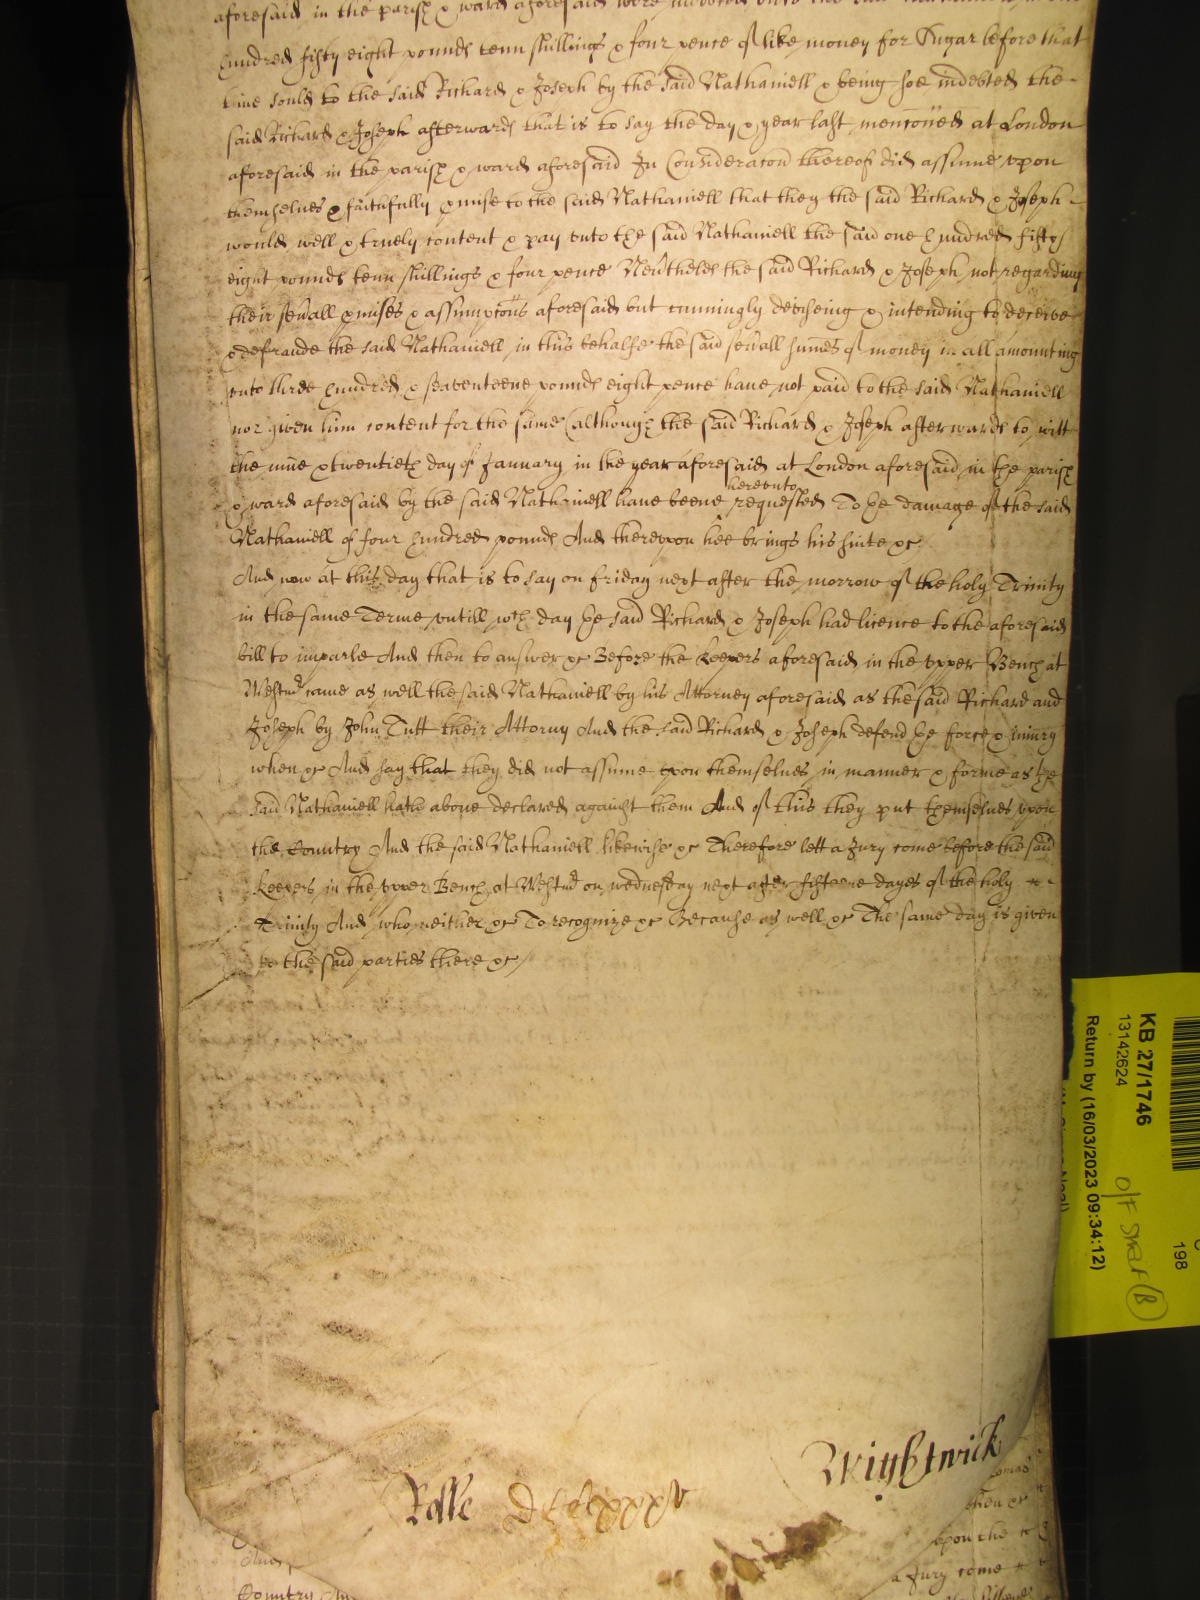 aforesaid in the parish & ward aforesaid were indebted unto the said
hundred fifty eight pounds tenn shillings & four pence of like money for Sugar before that
time sould to the said Richard & Joseph by the said Nathaniell & being soe indebted the
said Richard & Joseph afterwards that is to say the day & year last menconed at London
aforesaid in the parish & ward aforesaid In Consideracon thereof did assume upon
themselves & faithfully pmise to the said Nathaniell that they the said Richard & Joseph
would well & truely content & pay unto the said Nathaniell the said one hundred fifty
eight pounds tenn shillings & four pence Nevtheles the said Richard & Joseph not regarding
their sevall pmises & assumptons aforesaid but cunningly deviseing & intending to deceive
& defraude the said Nathaniell in this behalfe the said sevall sumes of money in all amounting
unto three hundred & seaventeene pounds eight pence have not paid to the said Nathaniell
nor given him content for the same (although the said Richard & Joseph afterwards to witt
the nine & twentieth day of January in the year aforesaid at London aforesaid in the parish
hereunto
& ward aforesaid by the said Nathaniell have beene requested To the damage of the said
Nathaniell of four hundred pounds And thereupon hee brings his suite &c
And now at this day that is to say on friday next after the morrow of the holy Trinity
in the same Terme untill wch day the said Richard & Joseph had licence to the aforesaid
bill to imparle And then to answer &c Before the keepers aforesaid in the upper Bench at
Westmr came as well the said Nathaniell by his Attorney aforesaid as the said Richard and
Joseph by John Tutt their Attorny And the said Richard & Joseph defend the force & iniury
when &c And say that they did not assume upon themselves in manner & forme as the
said Nathaniell hath above declared against them And of this they put themselves upon
the Country And the said Nathaniell likewise &c Therefore lett a Jury come before the said
keepers in the upper Bench at Westmr on wednesday next after fifteene dayes of the holy
Trinity And who neither &c To recognize &c Because as well &c The same day is given
to the said parties there &c
Rolle
Wightwick
then &c
upon the
a Jury come
And
Country And
KB 27/1746
13142624
Return by (16/03/2023 09:34:12)
O/F
198